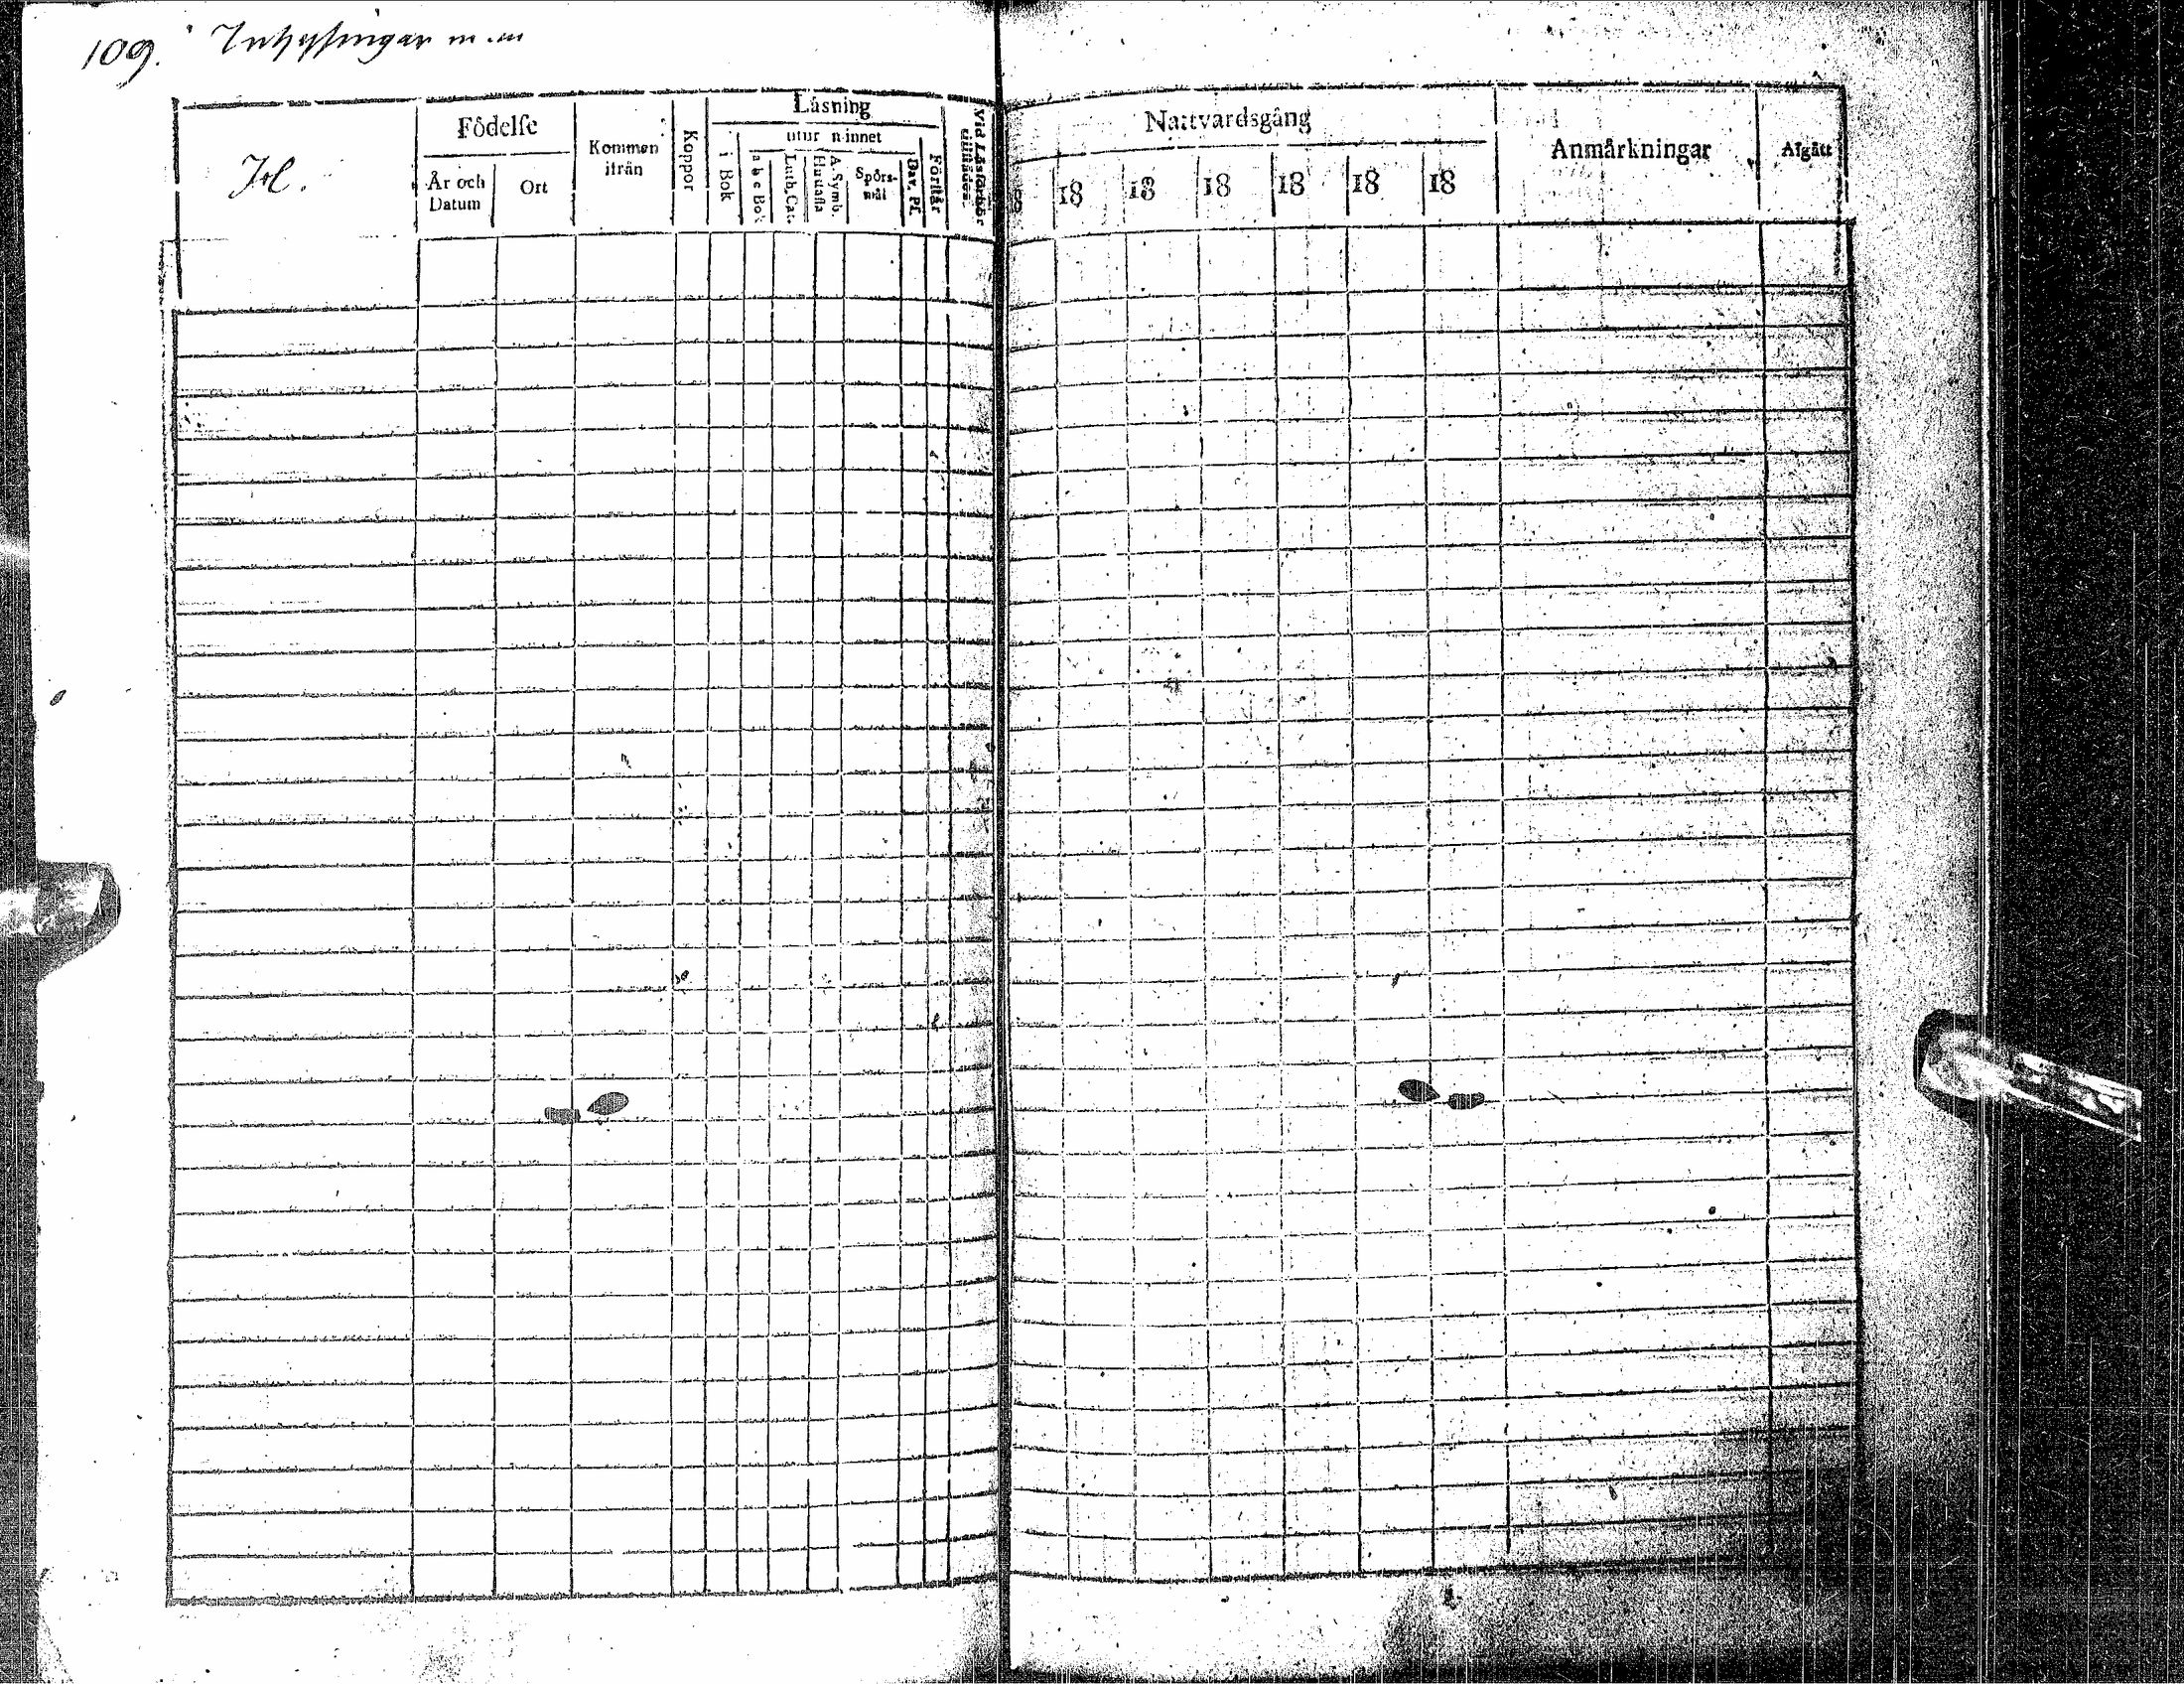 109. Inhysingar m.m
Födelse
År och Datum
Ort
Kommen ifrån
Koppor
Läsning
i Bok
utur minnet
a b c Bok
Luth. Cat.
A. Symb. Hustafla
Spörsmål
Dav. Ps.
Förstår
Vid Läsförhör tillstädes.
Nattvardsgång
18 18 18 18 18 18 18
Anmärkningar
Afgått